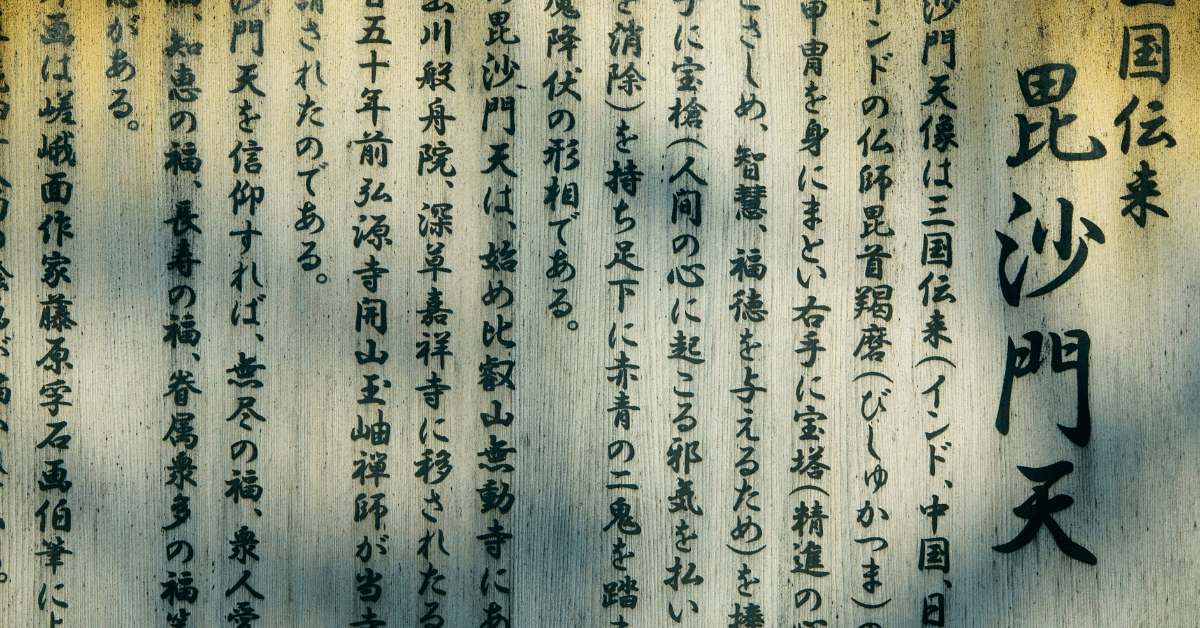 国伝来
毘沙門天
沙門天像は三国伝来(インド、中国、日
ンドの仏師毘首羯磨(びしゅかつま)の
甲冑を身にまとい右手に宝塔(精進の心
さしめ、智慧、福徳を与えるため)を捧
に宝槍(人間の心に起こる邪気を払い
消除)を持ち足下に赤青の二鬼を踏
魔降伏の形相である。
毘沙門天は、始め比叡山無動寺にあ
川般舟院、深草嘉祥寺に移されたる
五十年前弘源寺開山玉岫禅師が当寺
請されたのである。
沙門天を信仰すれば、無尽の福、衆人愛
福、知恵の福、長寿の福、眷属衆多の福等
がある。
画は嵯峨面作家藤原孚石画伯筆によ